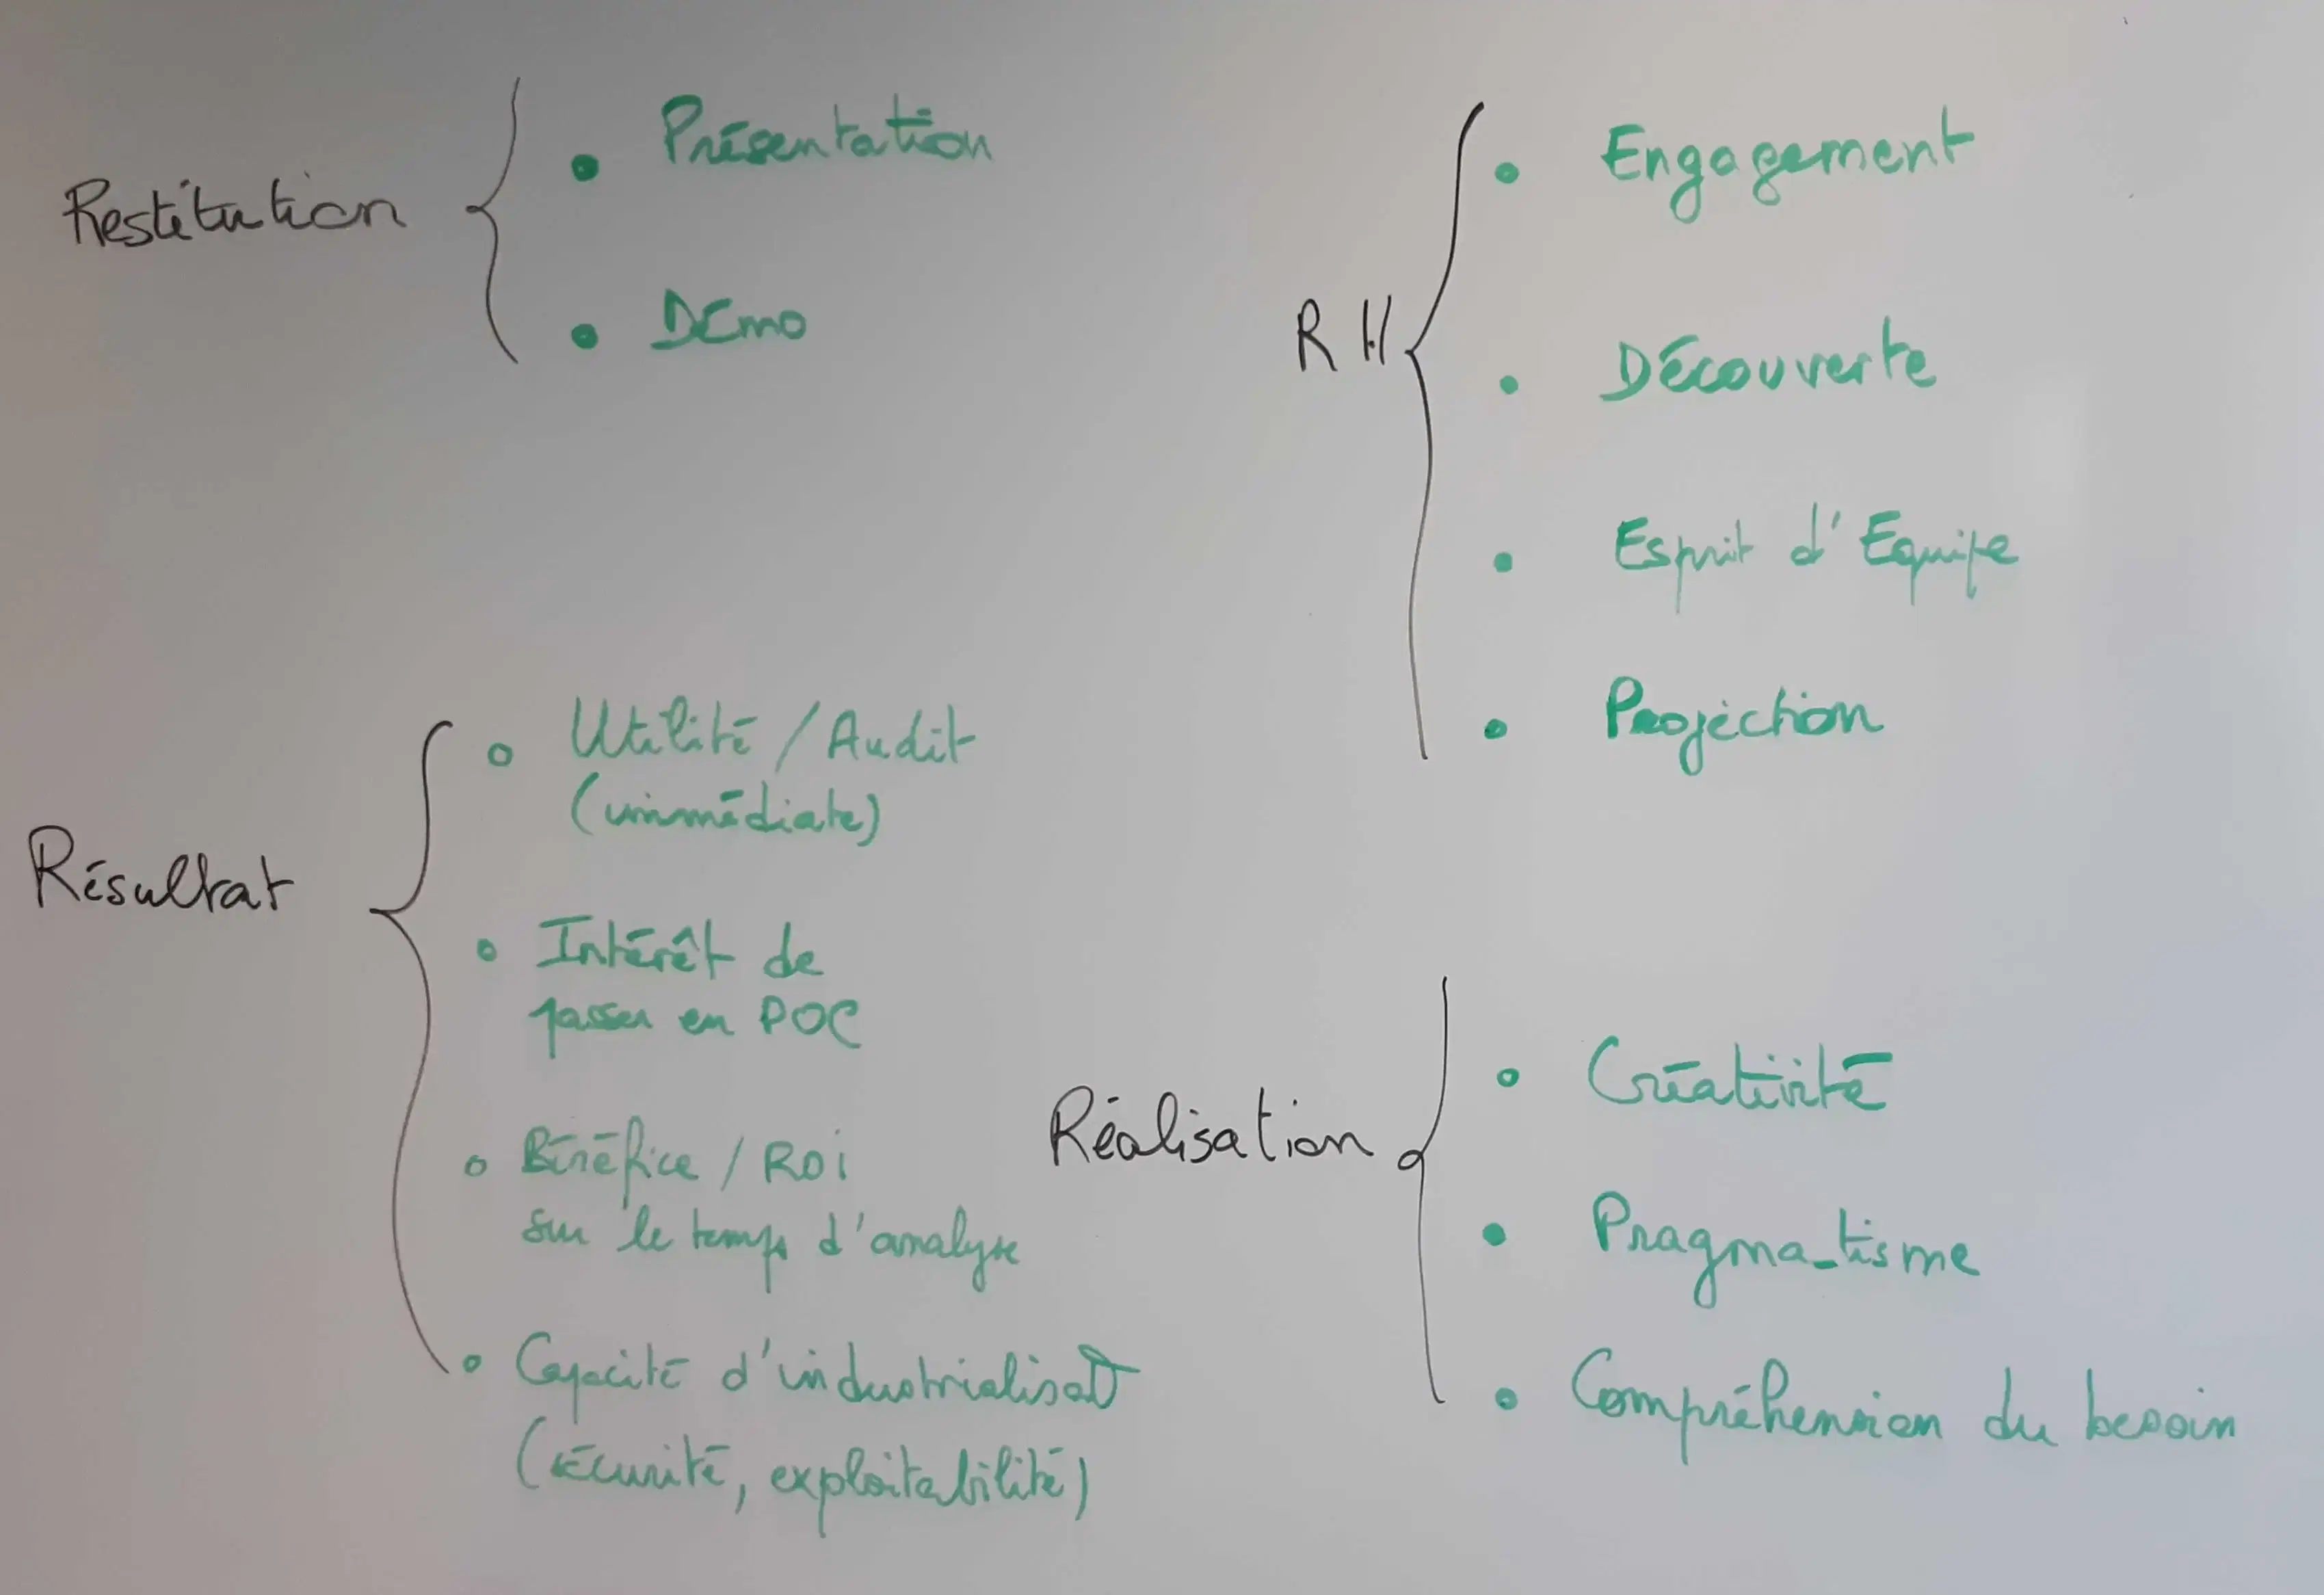 Restitution
• Présentation
• Démo
RH
• Engagement
• Découverte
• Esprit d'Equipe
• Projection
Résultat
• Utilité / Audit
(immédiate)
• Intérêt de
passer en POC
• Bénéfice / ROi
sur le temps d'analyse
• Capacité d'industrialisat°
(sécurité, exploitabilité)
Réalisation
• Créativité
• Pragma-tisme
• Compréhension du besoin